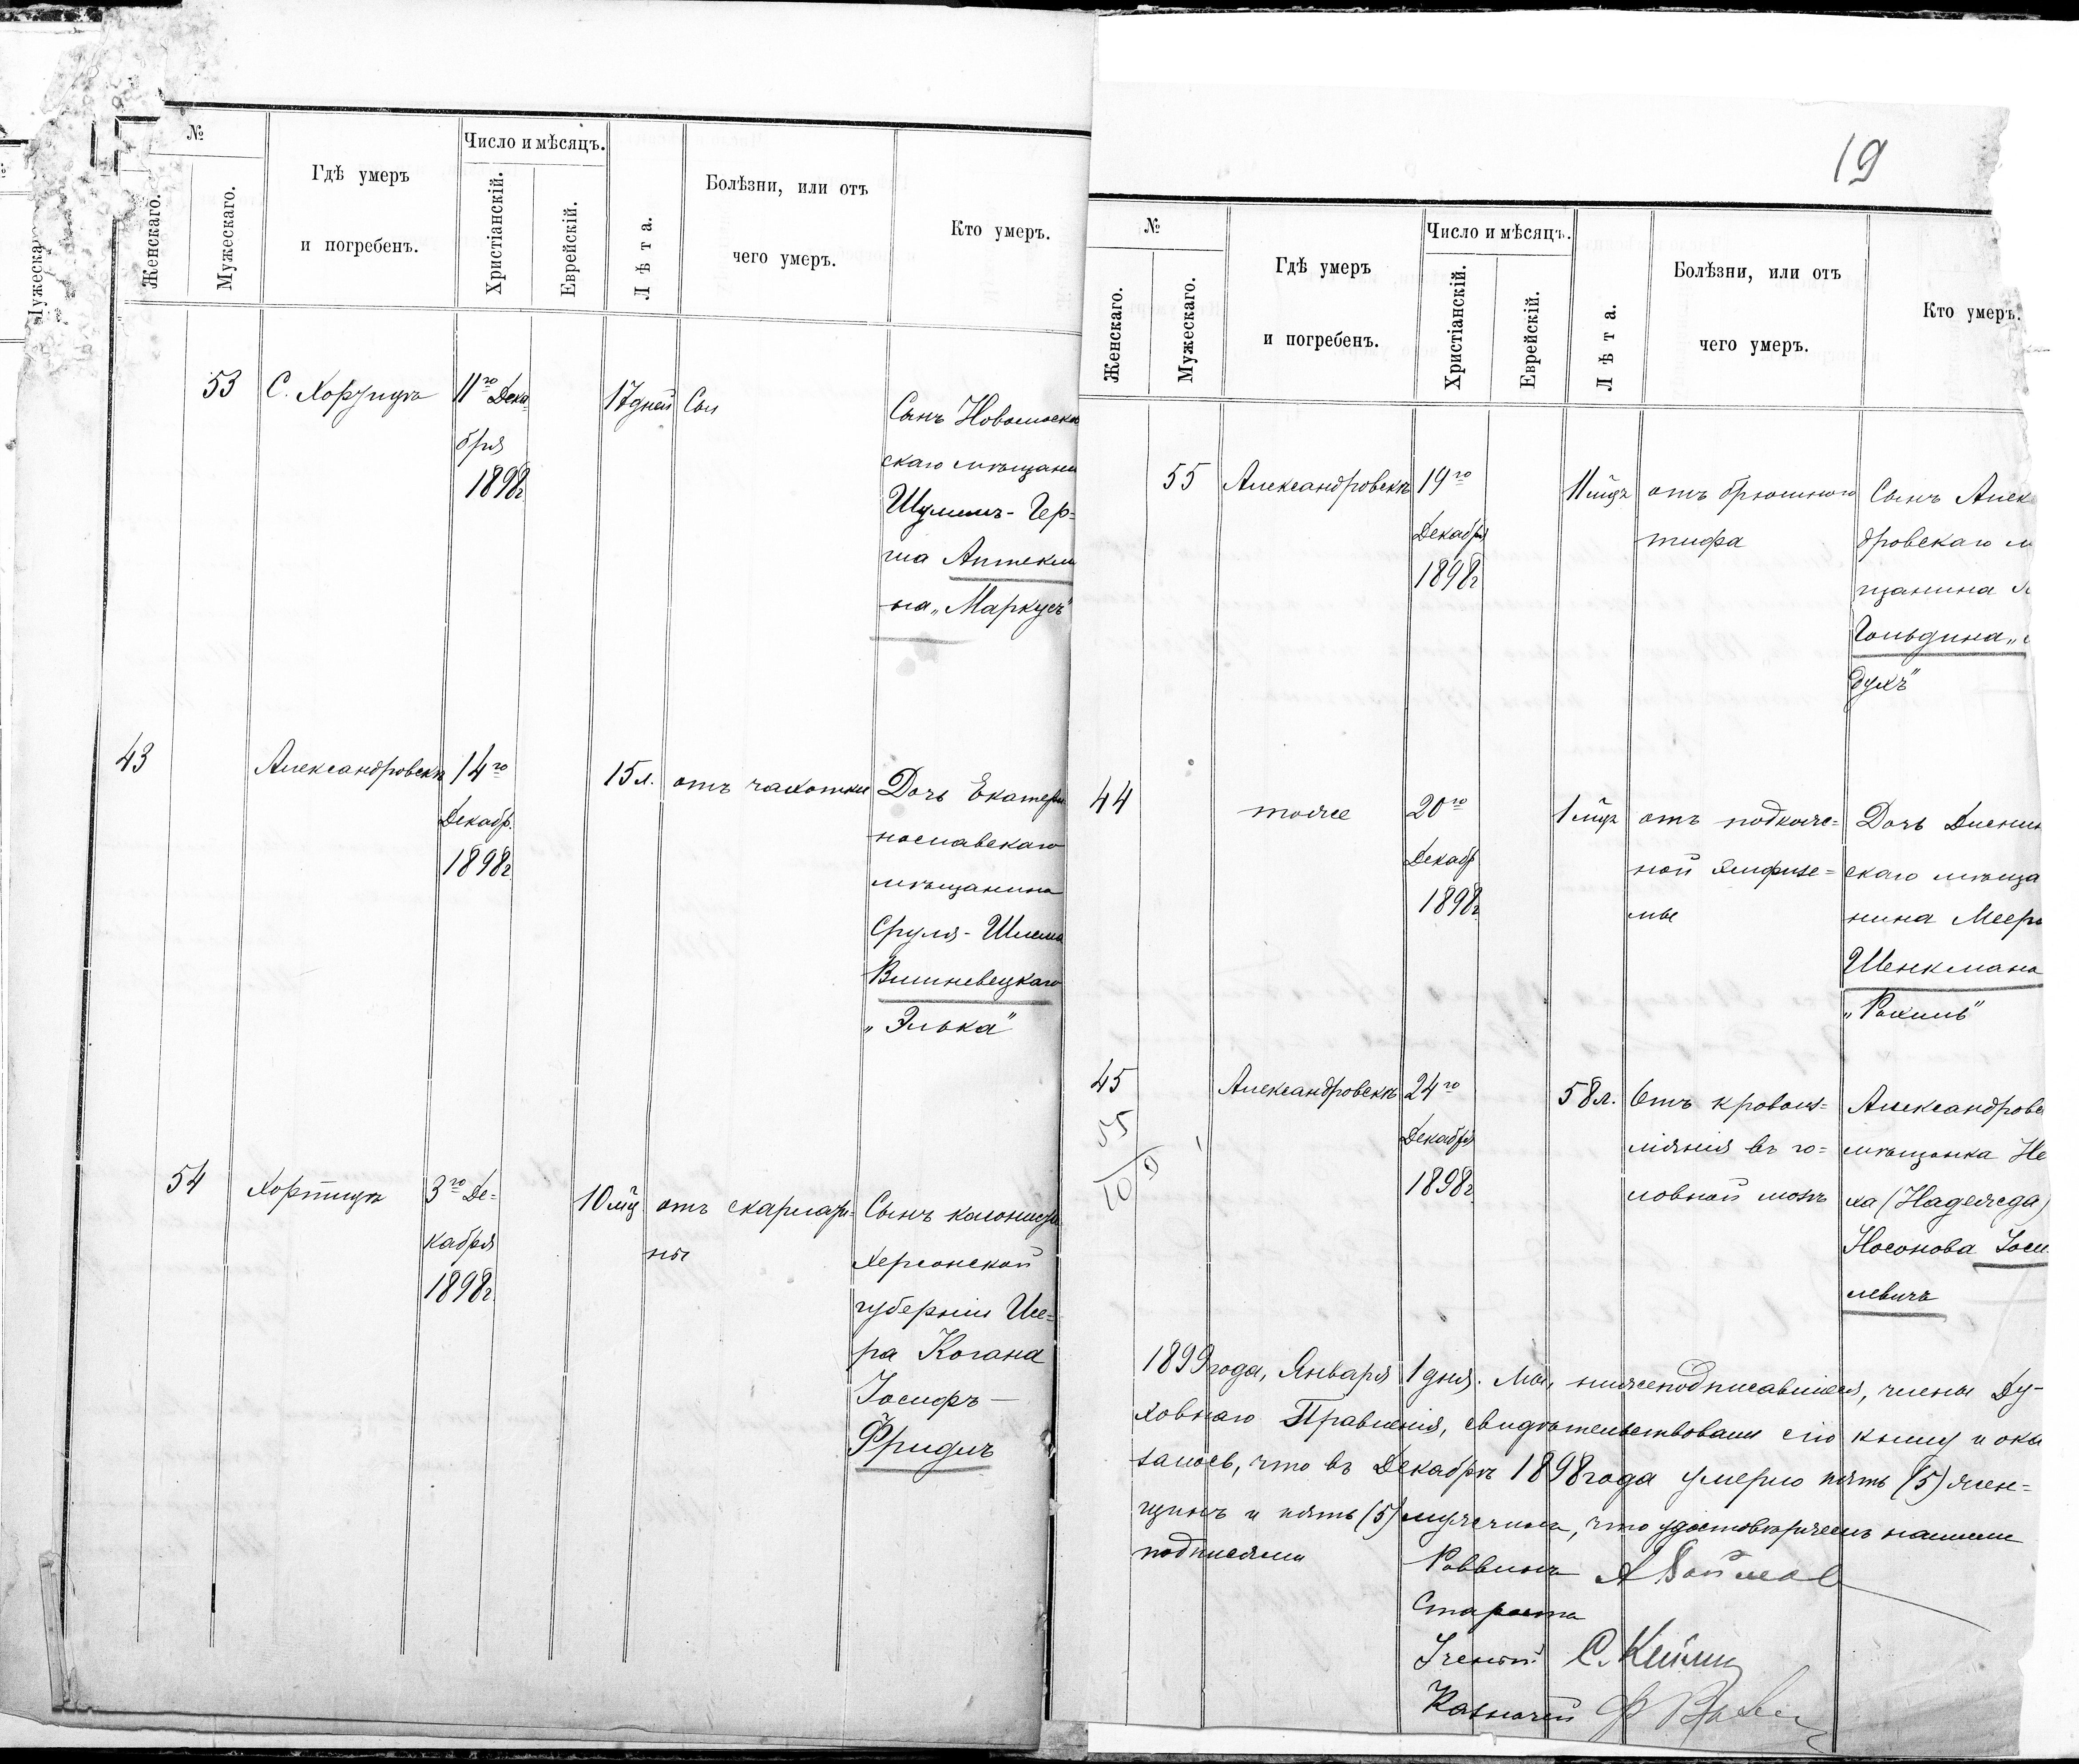 №
Женскаго.
Мужескаго.
Гдѣ умеръ
и погребенъ.
Число и мѣсяцъ.
Христіанскій.
Еврейскій.
Лѣта.
Болѣзни, или отъ
чего умеръ.
Кто умеръ.
53
С. Хортица
11го Дека-
бря
1898г
17 дней
Сынъ Новомоско
скаго мѣщани
Шулимъ-Гер-
ша Аптекма
на „Маркусъ"
43
Александровскъ
14го
Декабр.
1898г.
15 л.
отъ чахотки
Дочь Екатери
нославскаго
мѣщанина
Сруля-Шлема
Вишневецкаго
„Элька"
54
Хортица
3го Де-
кабря
1898г.
10 мц
отъ скарлати-
ны
Сынъ колониста
Херсонской
губерніи
Ше-
ра Когана
Іосифъ —
Фридль
19
№
Женскаго.
Мужескаго.
Гдѣ умеръ
и погребенъ.
Число и мѣсяцъ.
Христіанскій.
Еврейскій.
Лѣта.
Болѣзни, или отъ
чего умеръ.
Кто умеръ.
55
Александровскъ
19го
Декабря
1898г
11 мцъ
отъ брюшного
тифа
Сынъ Алек
дровскаго м
щанина
Гольдина „
духъ"
44
тоже
20го
Декабр
1898г
1 мцъ
отъ подкоже-
ной эмфизе-
мы
Дочь
скаго мѣща
нина Меера
Шенкмана
„Рахиль"
45
Александровскъ
24го
Декабря
1898г
58 л.
Отъ кровоиз-
ліянія въ го-
ловной мозгъ
Александровс
мѣщанка Не
ха (Надежда)
Носонова Іоси
левичъ
55
10
9
1899 года, Января 1 дня. Мы, нижеподписавшіеся, члены Ду-
ховнаго Правленія, свидѣтельствовали сію книгу и ока
залось, что въ Декабрѣ 1898 года умерло пять (5) жен-
щинъ и пять (5) мужчинъ, что удостовѣряемъ нашими
подписями
Раввинъ
Староста
Ученый С.
Казначей